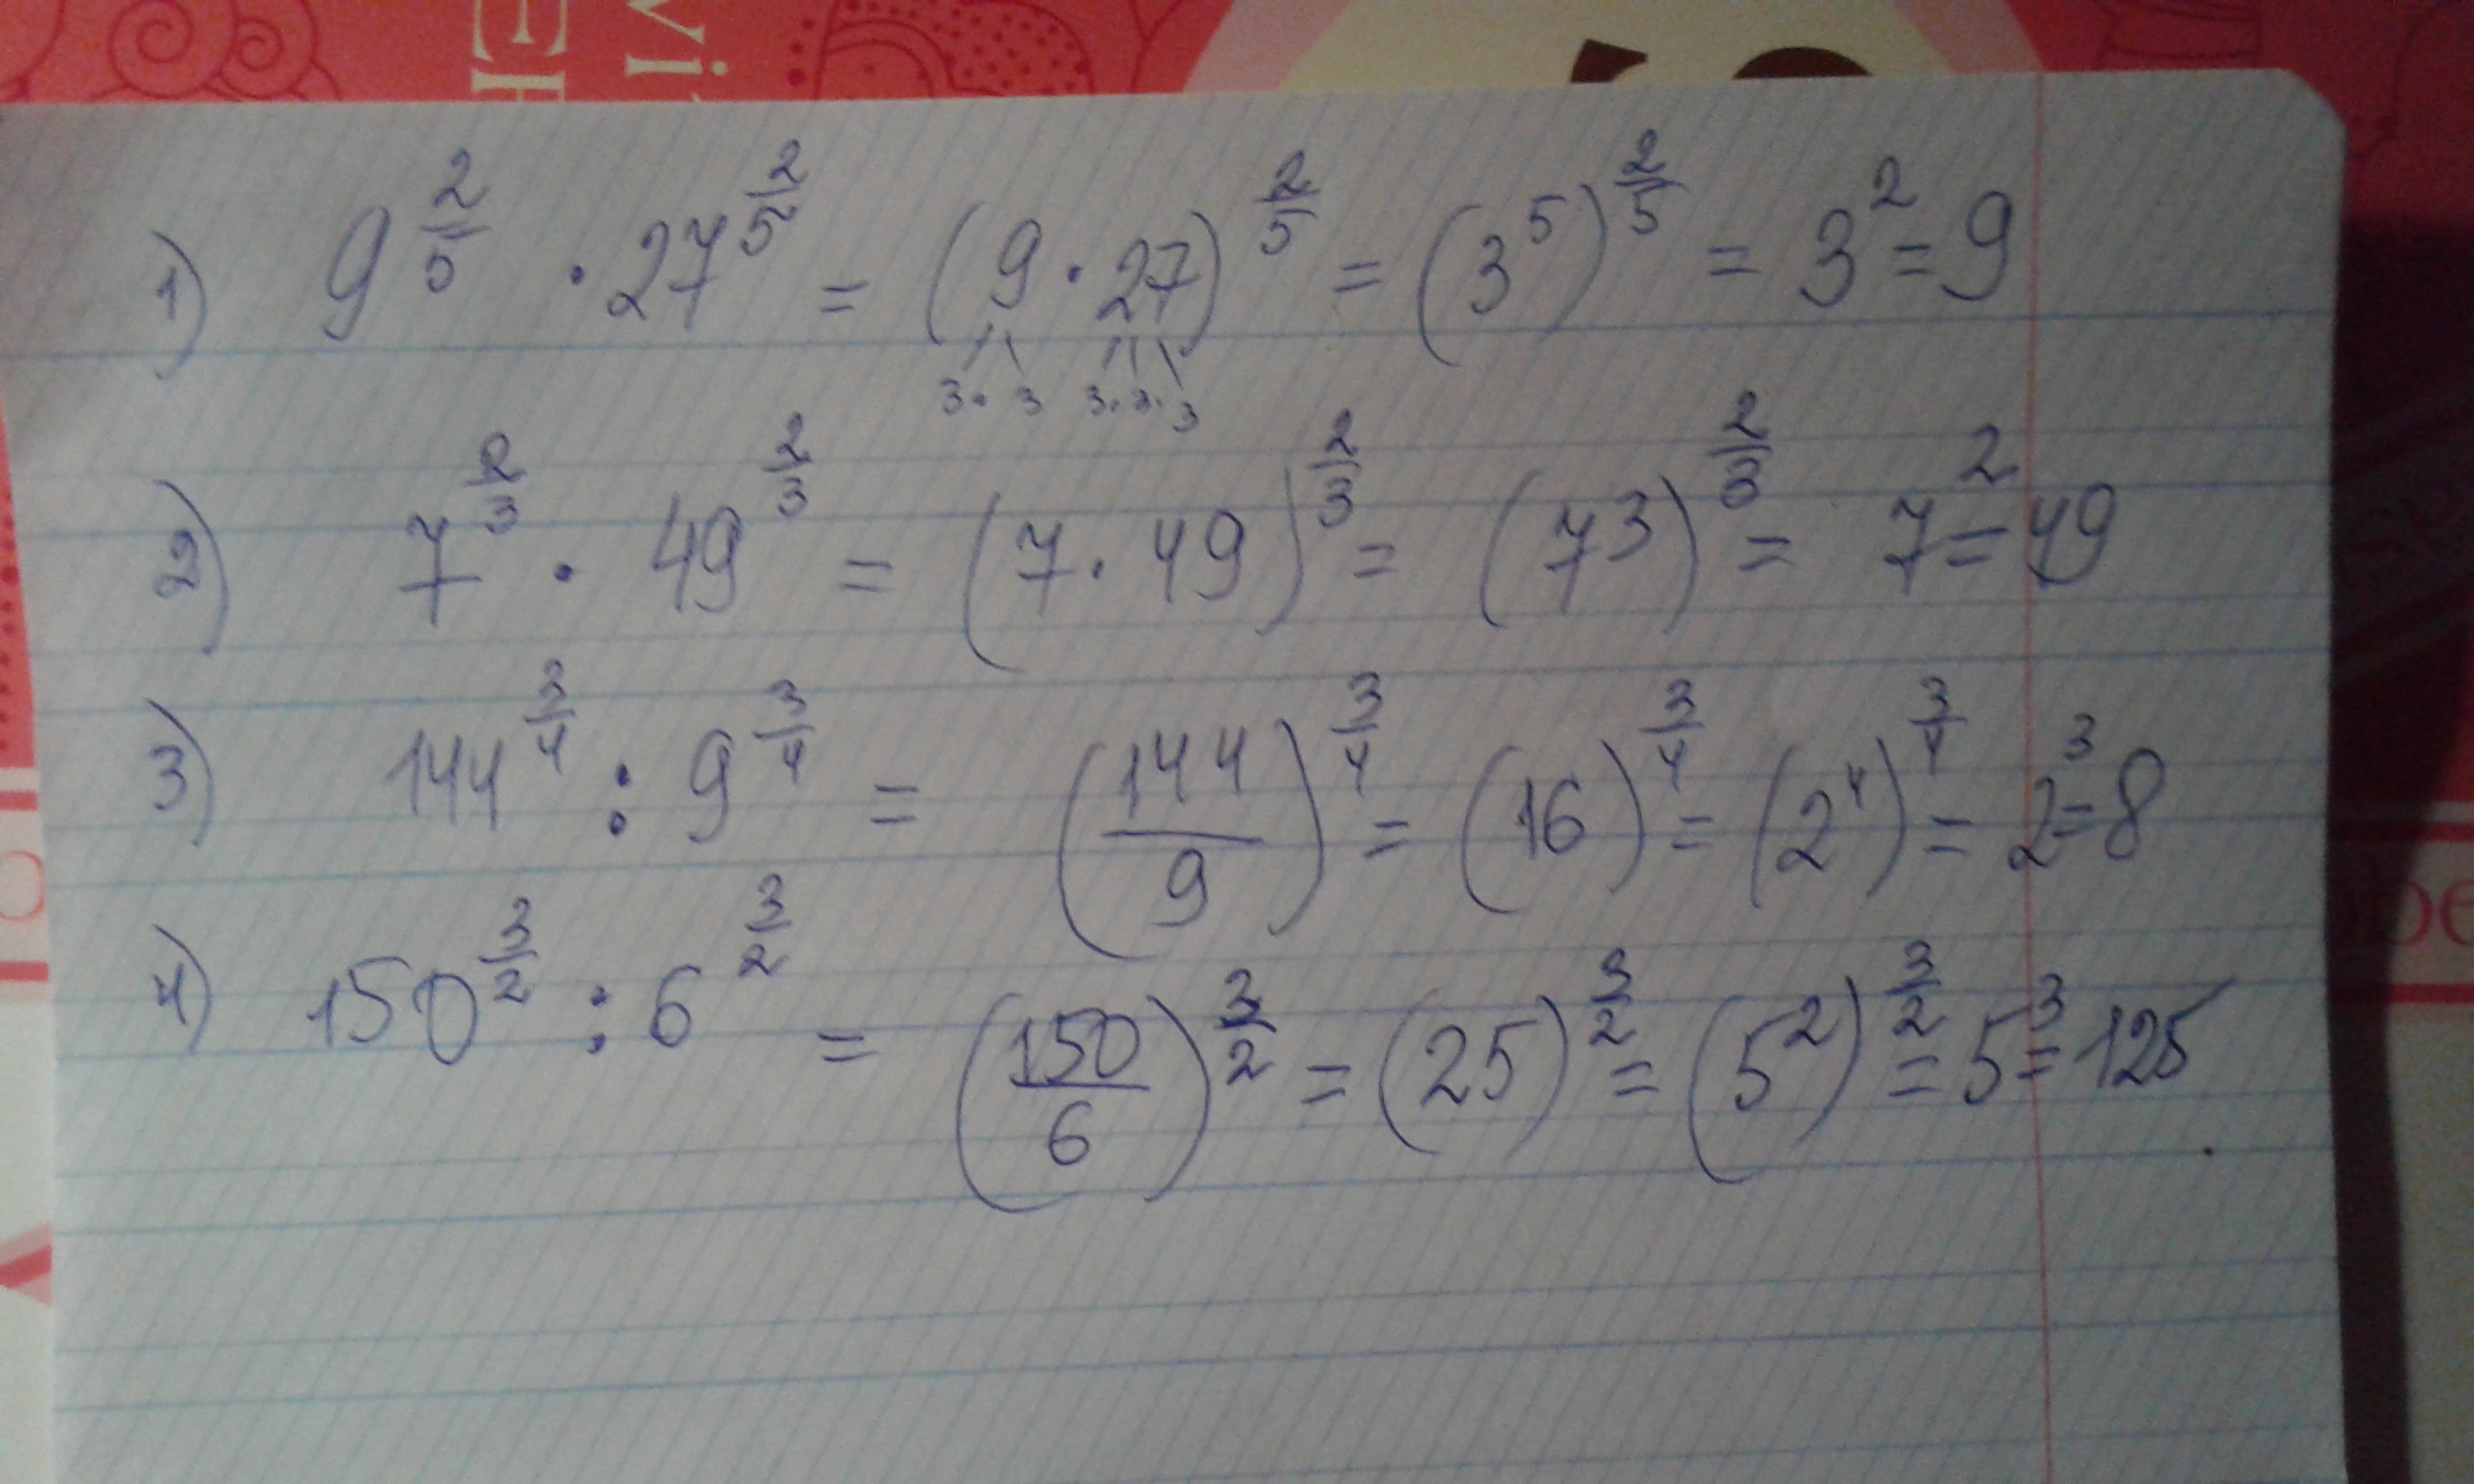 vi
EH
1) 9^(2/5) · 27^(2/5) = (9 · 27)^(2/5) = (3^5)^(2/5) = 3^2 = 9
3 · 3 3 · 3 · 3
2) 7^(2/3) · 49^(2/3) = (7 · 49)^(2/3) = (7^3)^(2/3) = 7^2 = 49
3) 144^(3/4) : 9^(3/4) = (144/9)^(3/4) = (16)^(3/4) = (2^4)^(3/4) = 2^3 = 8
4) 150^(3/2) : 6^(3/2) = (150/6)^(3/2) = (25)^(3/2) = (5^2)^(3/2) = 5^3 = 125